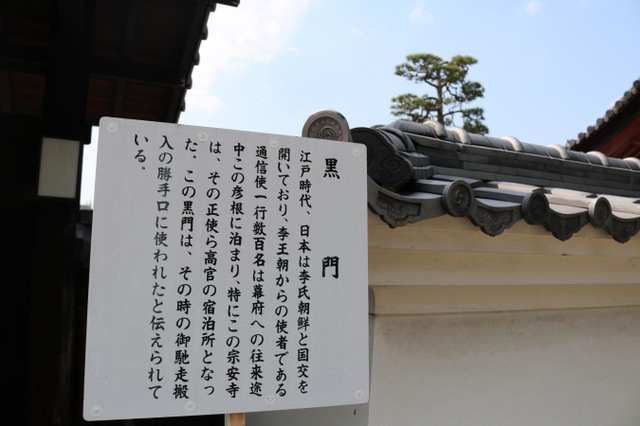 黒門
江戸時代、日本は李氏朝鮮と国交を
開いており、李王朝からの使者である
通信使一行数百名は幕府への往来途
中この彦根に泊まり、特にこの宗安寺
は、その正使ら高官の宿泊所となっ
た。この黒門は、その時の御馳走搬
入の勝手口に使われたと伝えられて
いる。